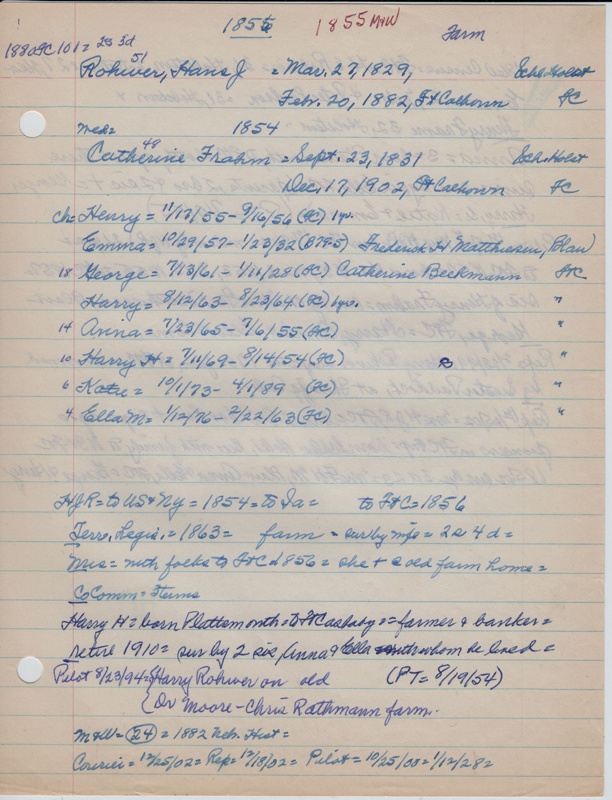 1856 1855 M&W
Farm
1880 FC 101 = 2s 3d
51
Rohwer, Hans J = Mar. 27, 1829, Sch. Holst
Feb. 20, 1882, Ft Calhoun FC
med = 1854
48
Catherine Frahm = Sept. 23, 1831 Sch. Holst
Dec. 17, 1902, Ft Calhoun FC
ch = Henry = 11/17/55 - 9/16/56 (FC) 1 yr.
Emma = 10/29/57 - 1/23/32 Frederick H Matthiesen, Blair
18 George = 7/13/61 - 1/11/28 (FC) Catherine Beckmann FC
Harry = 8/12/63 - 8/23/64 (FC) 1 yr. "
14 Anna = 7/23/65 - 7/6/55 (FC) "
10 Harry H = 7/11/69 - 8/14/54 (FC) s "
6 Katie = 10/1/73 - 4/1/89 (FC) "
4 Ella M = 1/12/76 - 2/22/63 (FC) "
HJR = to US & NY = 1854 = to Ia = to FtC = 1856
Terr. Legis. = 1863 = farm = sur by mfo = 2s 4d =
Mrs = with folks to FtC 1856 = she + s old farm home =
Co Comm = terms
Harry H = born Plattsmouth = to FtC as baby = farmer & banker =
retire 1910 = sur by 2 sis, Anna & Ella with whom he lived =
Pilot 8/23/94 = Harry Rohwer on old (PT = 8/19/54)
Dr Moore - Chris Rathmann farm.
M&W = 24 = 1882 Neb. Hist =
Courier = 12/25/02 = Rep = 12/18/02 = Pilot = 10/25/00 = 1/12/28 =